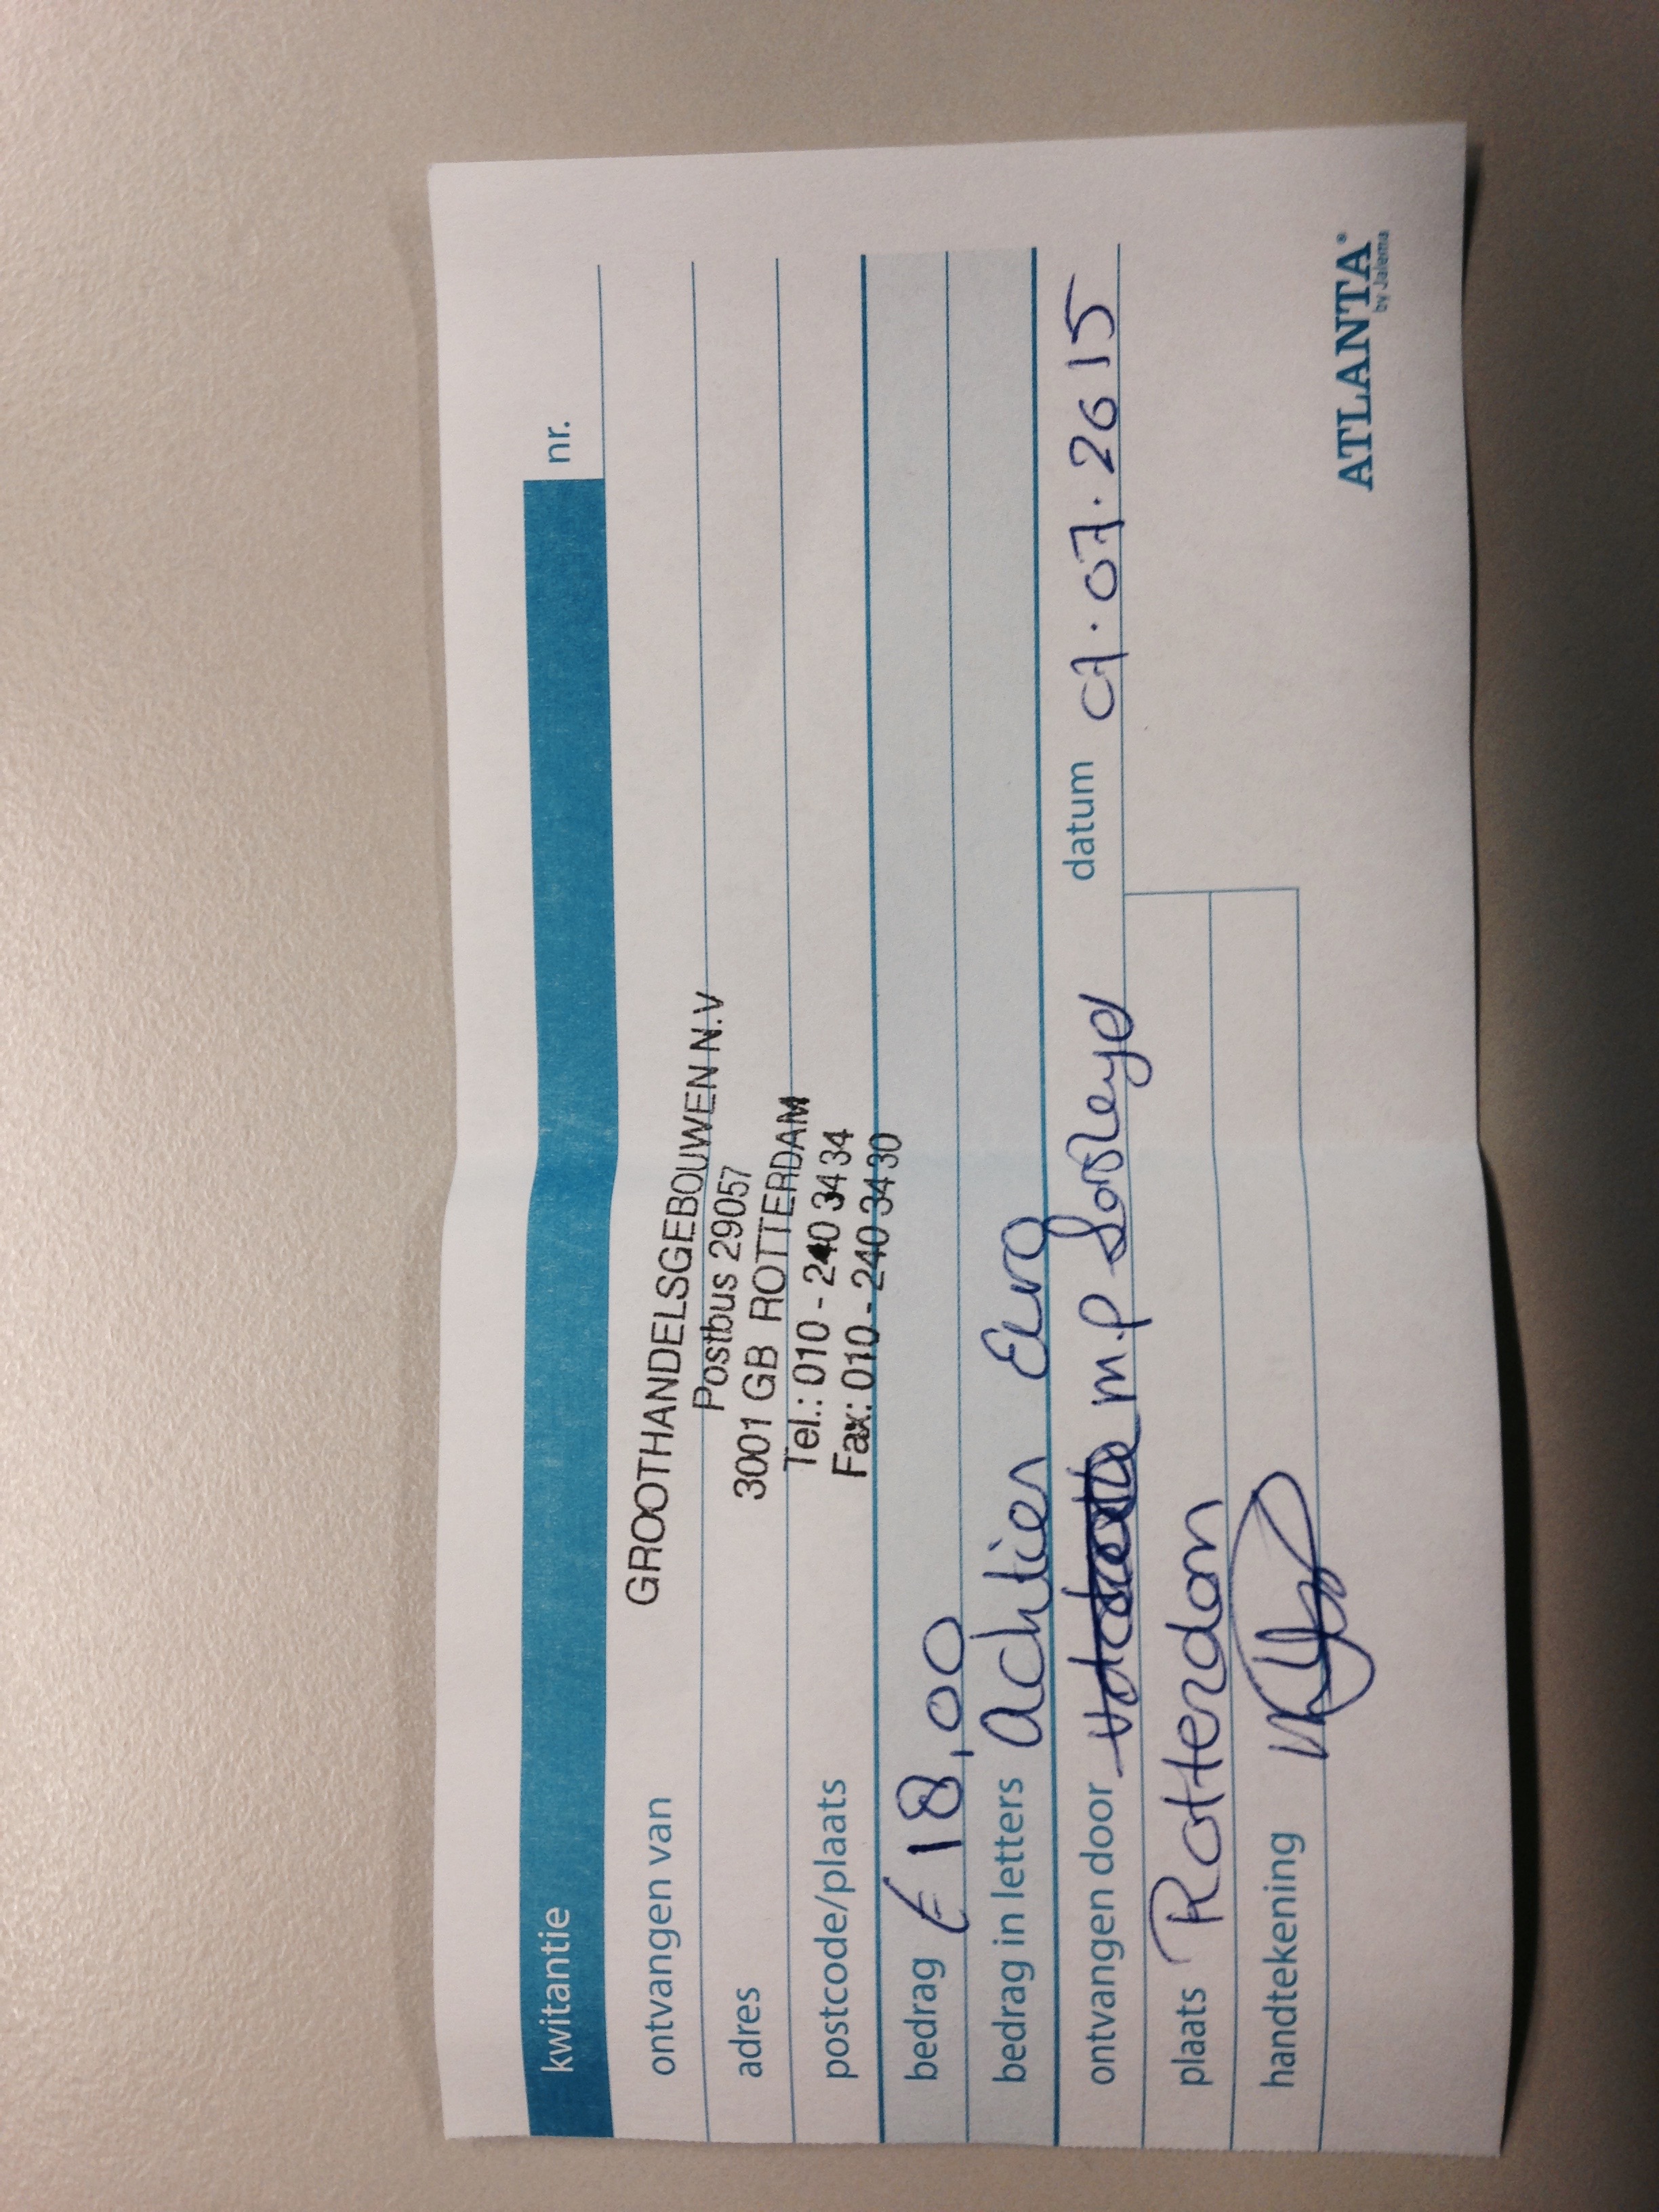 kwitantie nr.
ontvangen van GROOTHANDELSGEBOUWEN N.V
Postbus 29057
adres
3001 GB ROTTERDAM
Tel.: 010 - 240 34 34
postcode/plaats
Fax: 010 - 240 34 30
bedrag € 18,00
bedrag in letters Achtien Euro
ontvangen door m.p datum 07.07.2015
plaats Rotterdam
handtekening
ATLANTA®
by Jalema